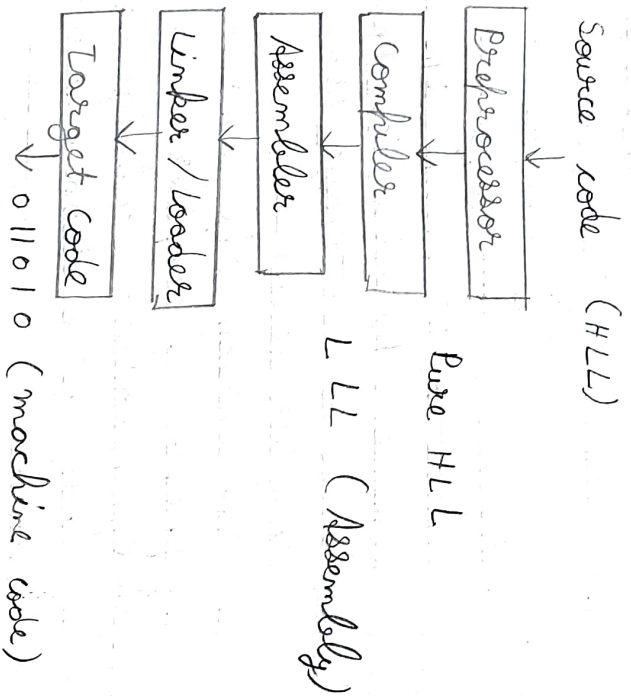 Source code (HLL)
Preprocessor
Pure HLL
Compiler
LLL (Assembly)
Assembler
Linker / Loader
Target Code
011010 (machine code)